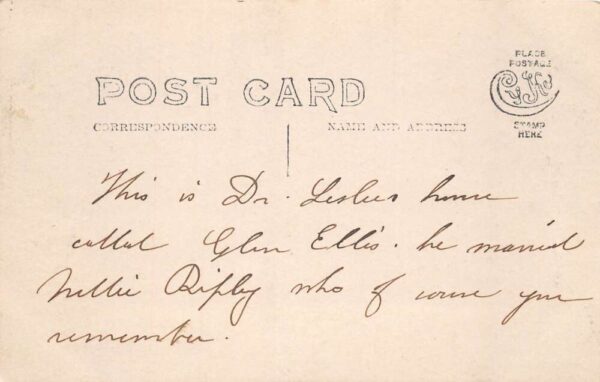 PLACE
POSTAGE
CYKO
STAMP
HERE
POST CARD
CORRESPONDENCE
NAME AND ADDRESS
This is Dr. Leslies home
called Glen Ellis. he married
Nellie Ripley who of course you
remember.